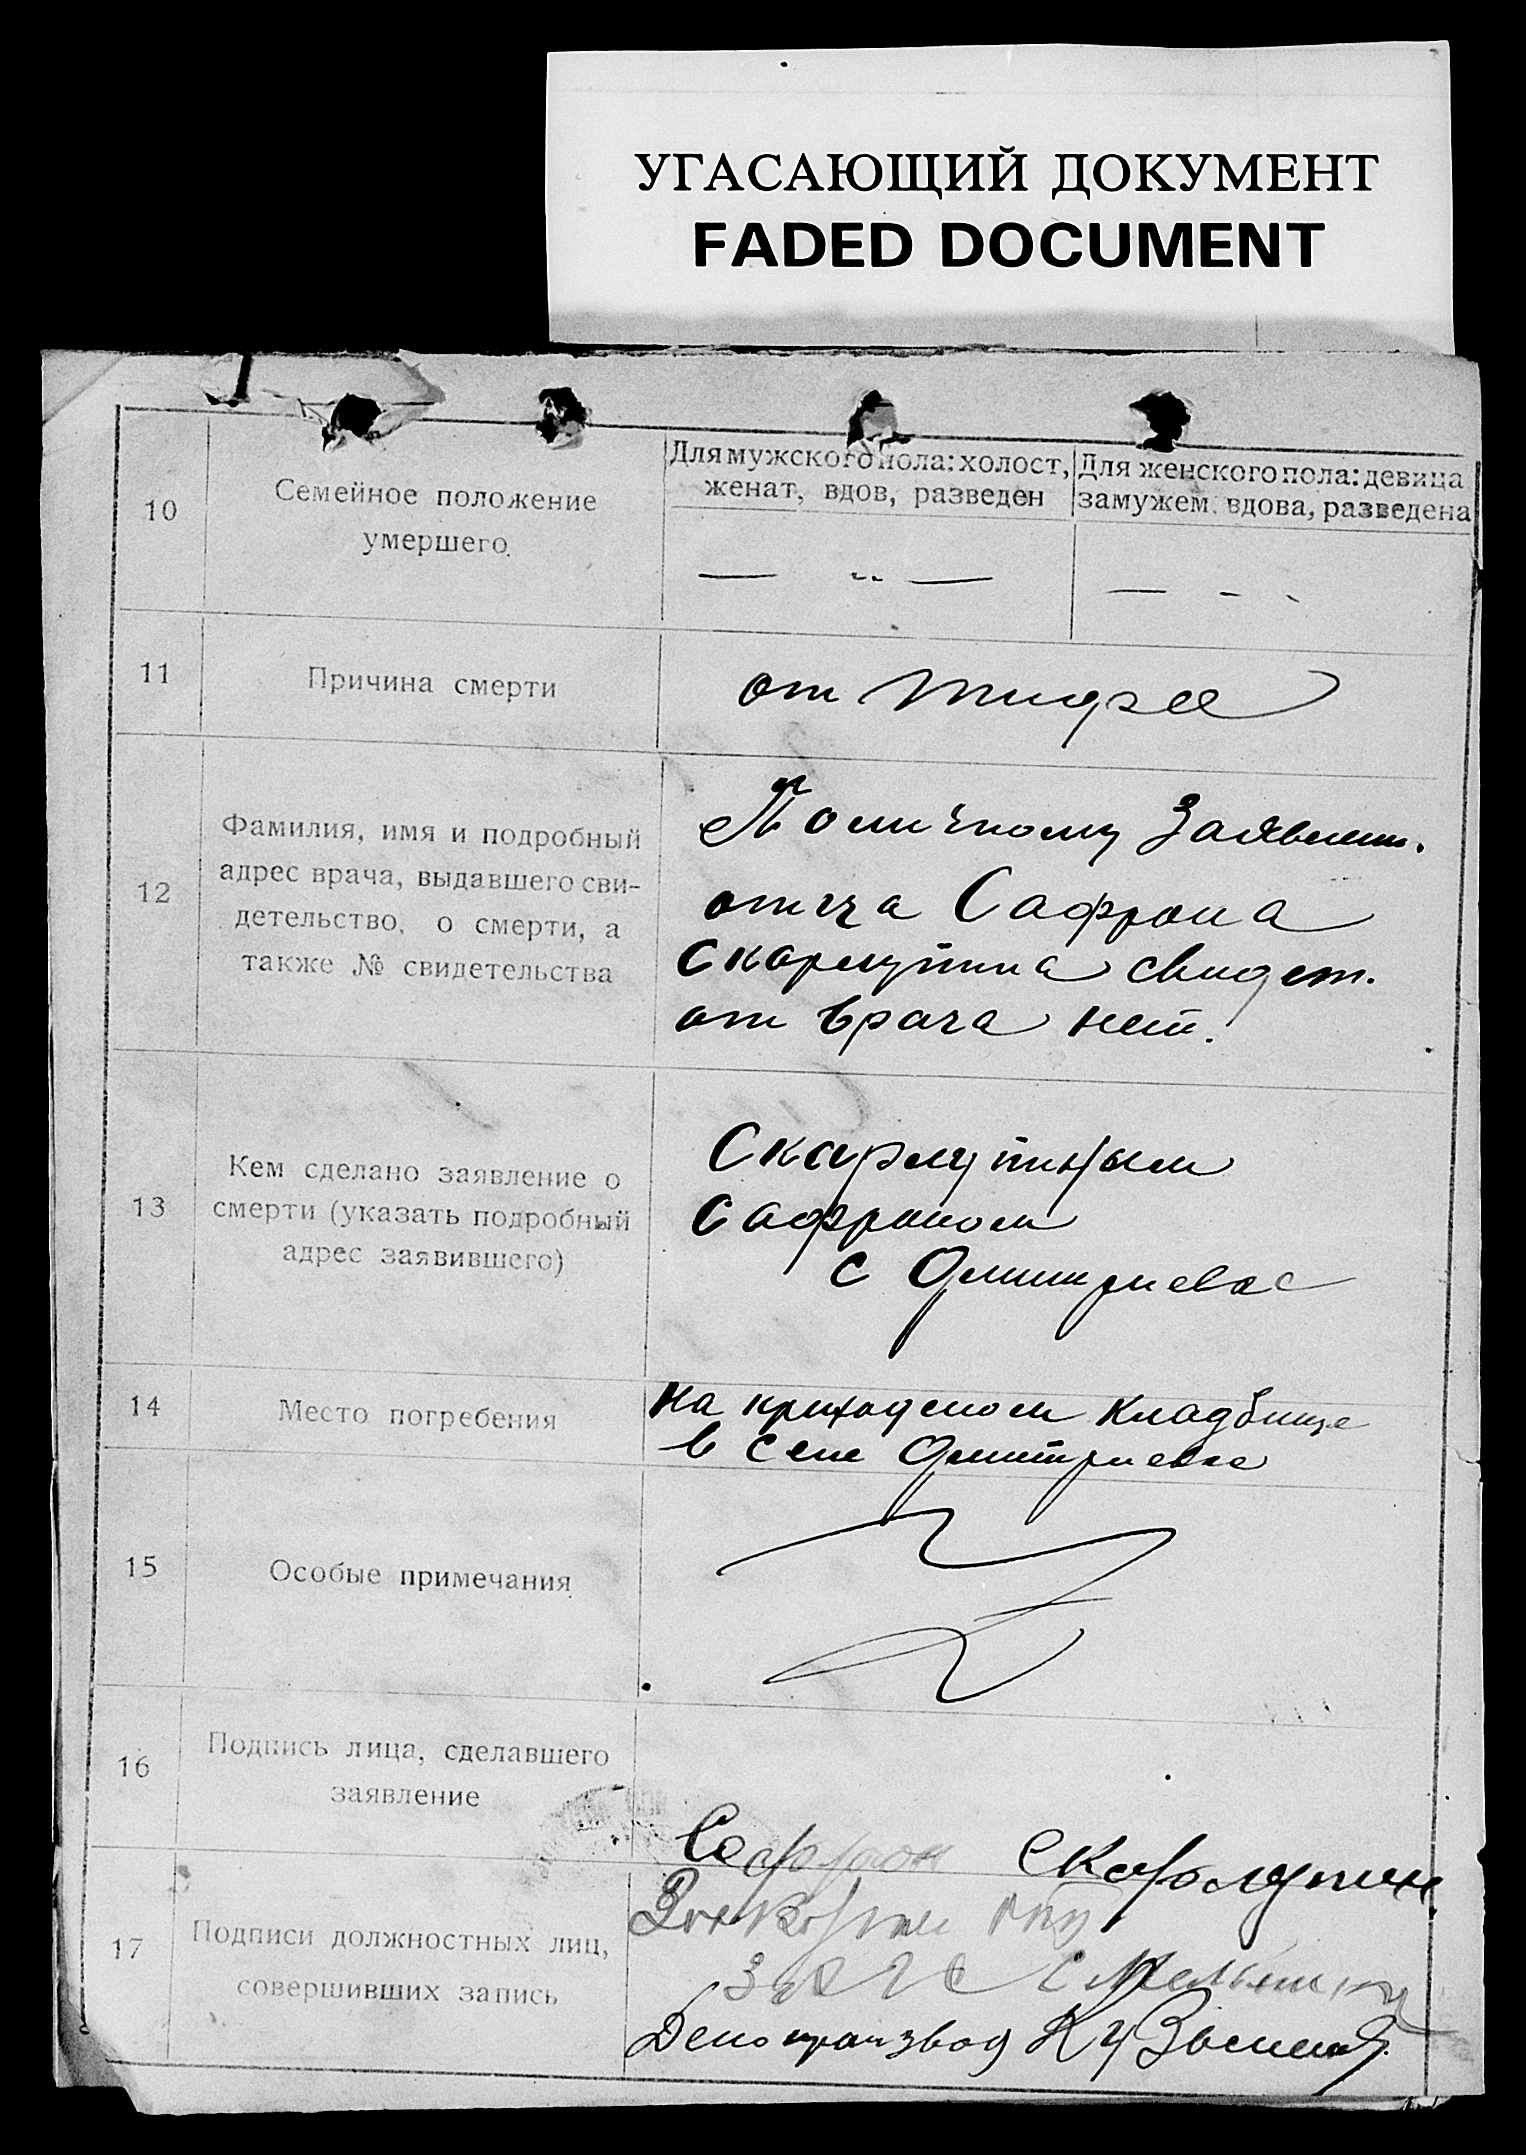 УГАСАЮЩИЙ ДОКУМЕНТ
FADED DOCUMENT
10
Семейное положение
умершего.
Для мужского пола: холост,
женат, вдов, разведен
Для женского пола: девица
замужем, вдова, разведена
— " —
— - -
11
Причина смерти
от тифа
12
Фамилия, имя и подробный
адрес врача, выдавшего сви-
детельство, о смерти, а
также № свидетельства
По личному Заявлен.
отца Сафрона
Скарлутина свидет.
от врача нет.
13
Кем сделано заявление о
смерти (указать подробный
адрес заявившего)
Скарлутиным
Сафроном
с Дмитриевка
14
Место погребения
На приходском кладбище
в селе Дмитриевке
15
Особые примечания
16
Подпись лица, сделавшего
заявление
Сафрон Скарлутин
17
Подписи должностных лиц,
совершивших запись
ЗАГС
Делопроизвод